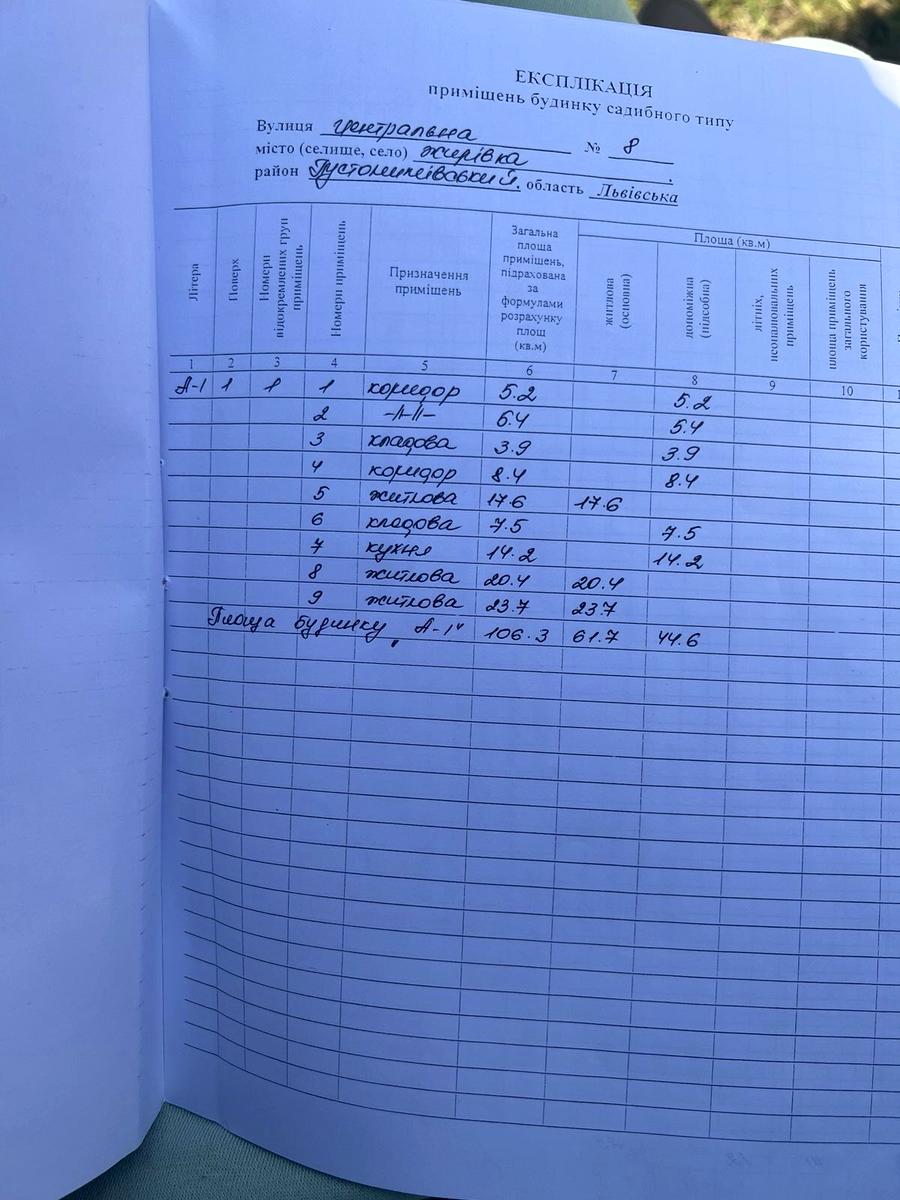 ЕКСПЛІКАЦІЯ
приміщень будинку садибного типу
Вулиця Центральна № 8
місто (селище, село) Жирівка
район Пустомитівський, область Львівська
Літера
Поверх
Номери відокремлених груп приміщень
Номери приміщень
Призначення приміщень
Загальна площа приміщень, підрахована за формулами розрахунку площ (кв.м)
Площа (кв.м)
житлова (основна)
допоміжна (підсобна)
літніх, неопалювальних приміщень
площа приміщень загального користування
1 2 3 4 5 6 7 8 9 10
А-1 1 1 1 коридор 5.2 5.2
2 -//-//- 5.4
3 кладова 3.9 3.9
4 коридор 8.4 8.4
5 житлова 17.6 17.6
6 кладова 7.5 7.5
7 кухня 14.2 14.2
8 житлова 20.4 20.4
9 житлова 23.7 23.7
Площа будинку „А-1" 106.3 61.7 44.6